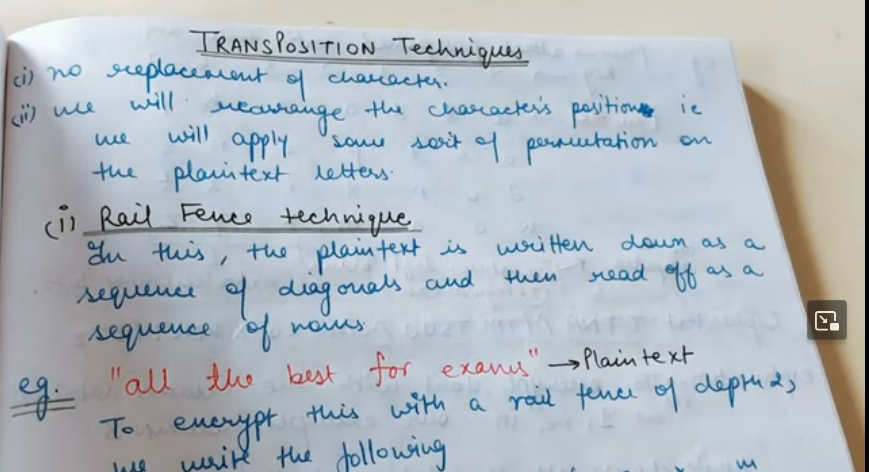 TRANSPOSITION Techniques
(i) no replacement of character.
(ii) we will rearrange the character's position ie
we will apply some sort of permutation on
the plaintext letters.
(i) Rail Fence technique
In this, the plaintext is written down as a
sequence of diagonals and then read off as a
sequence of rows.
eg. "all the best for exams" → Plaintext
To encrypt this with a rail fence of depth 2,
we write the following
m